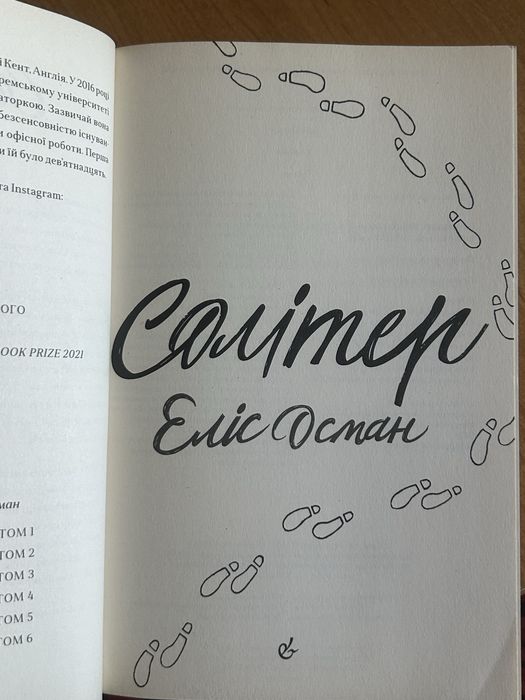 і Кент, Англія. У 2016 році
ремському університеті
аторкою. Зазвичай вона
безсенсовністю існуван-
и офісної роботи. Перша
и їй було дев'ятнадцять.
та Instagram:
ОГО
OOK PRIZE 2021
ман
ТОМ 1
ТОМ 2
ТОМ 3
ТОМ 4
ТОМ 5
ТОМ 6
Солітер
Еліс Осман